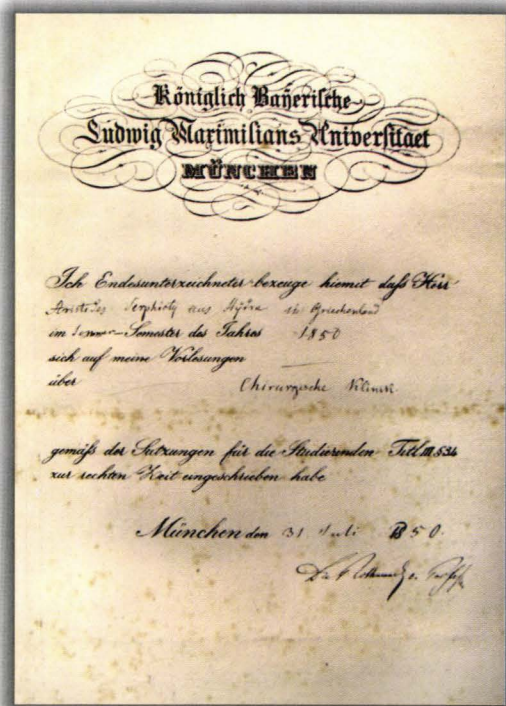 Königlich Bayerische
Ludwig Maximilians Universitaet
MÜNCHEN
Ich Endesunterzeichneter bezeuge hiemit daſs Herr
aus Hydra in Griechenland
im Semester des Jahres 1850
sich auf meine Vorlesungen
über Chirurgische Klinik
gemäſs der Satzungen für die Studierenden Titl. III §34
zur rechten Zeit eingeschrieben habe
München den 31 Juli 1850.
Dr.